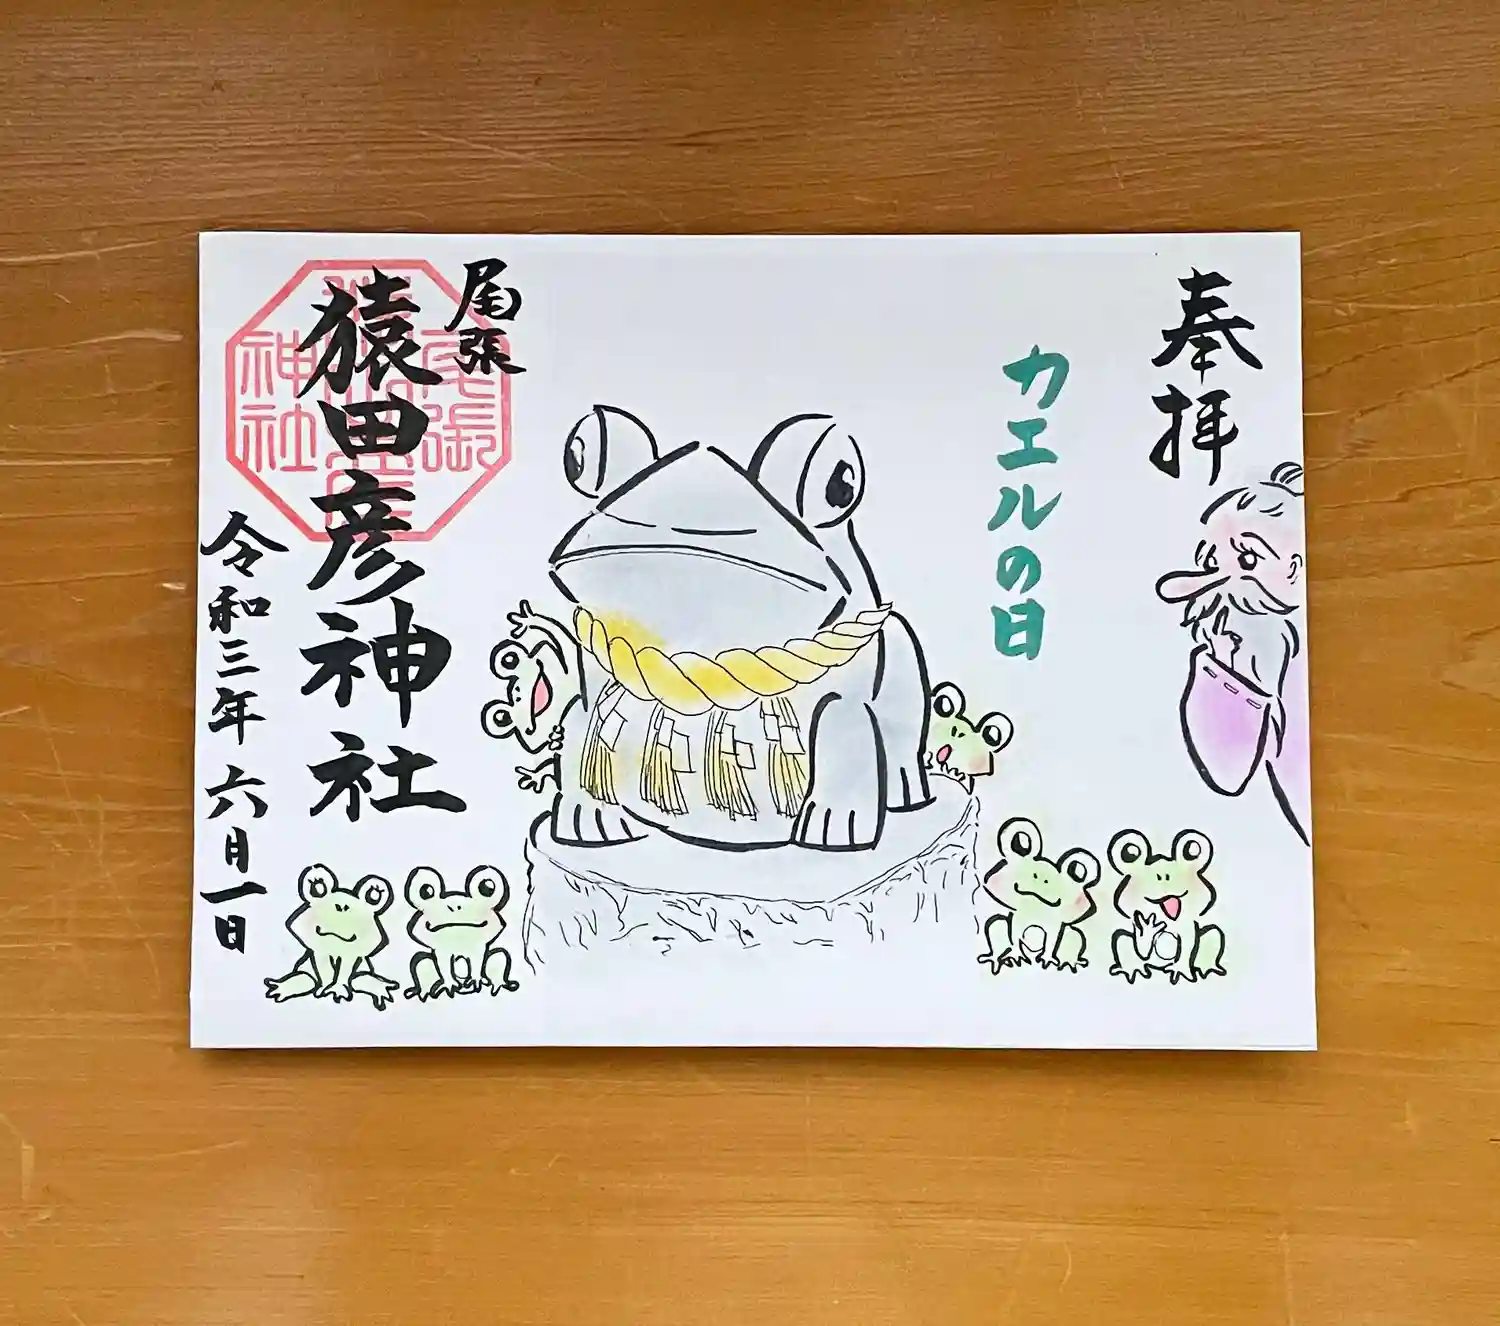 奉拝
カエルの日
尾張
猿田彦神社
令和三年 六月一日
尾張
神社